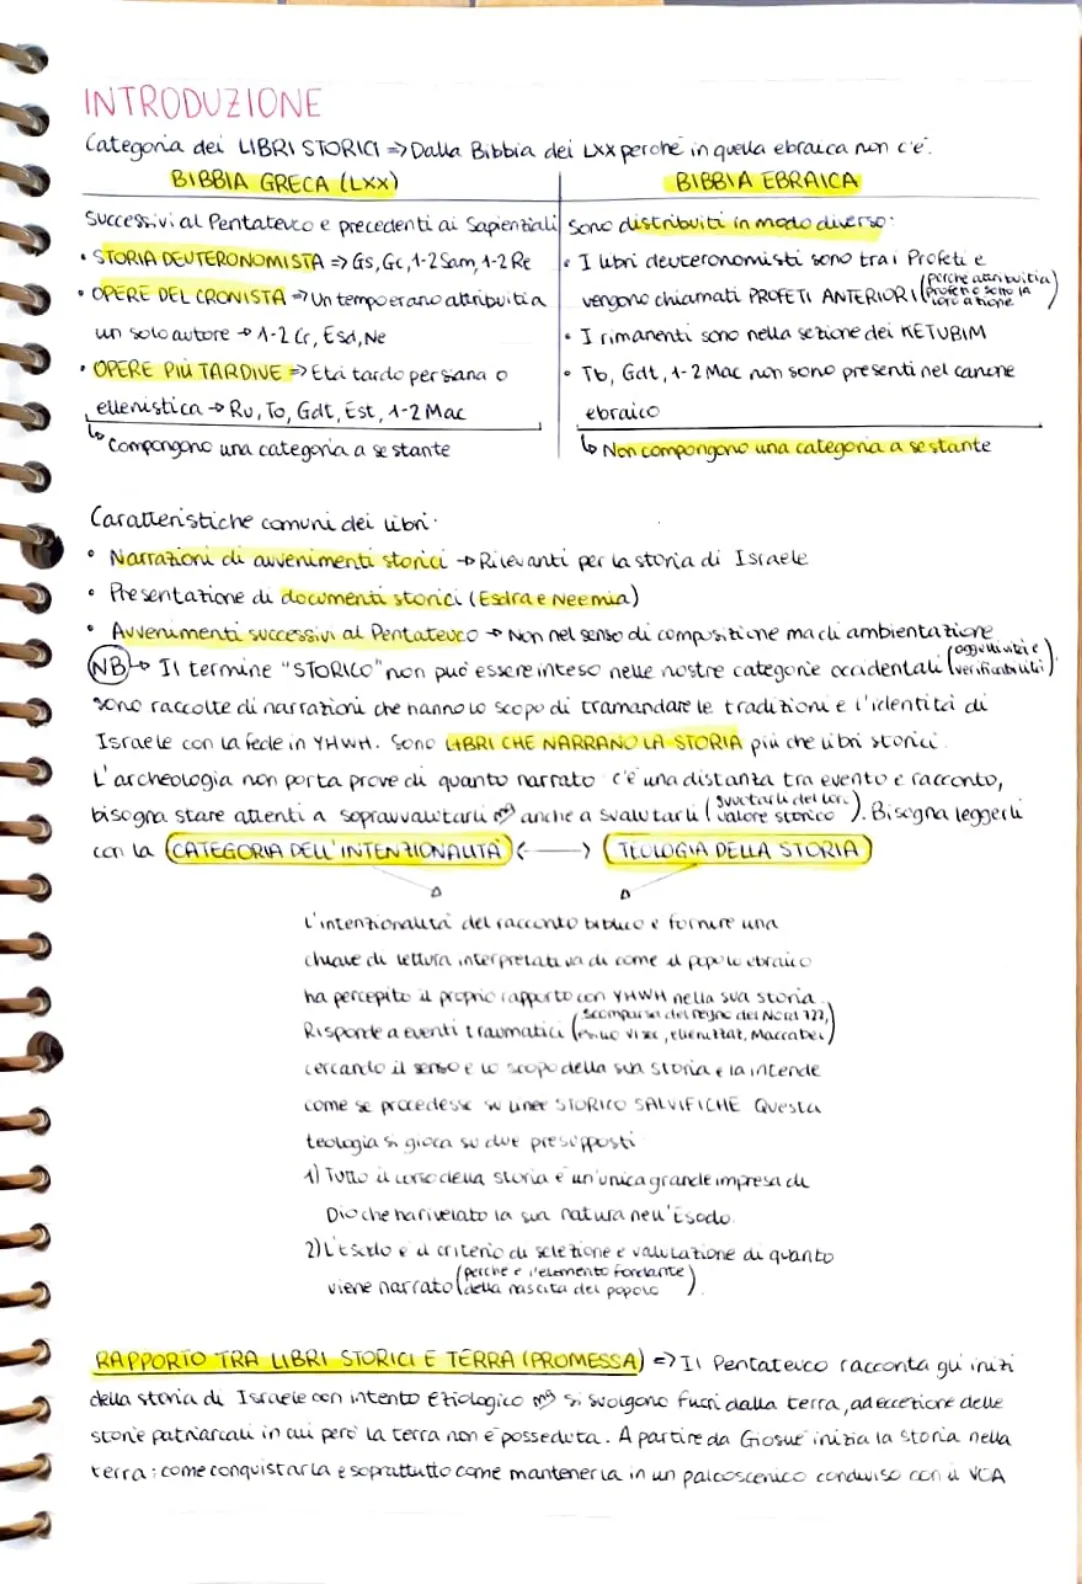 INTRODUZIONE
Categoria dei LIBRI STORICI => Dalla Bibbia dei LXX perché in quella ebraica non c'é.
BIBBIA GRECA (LXX)
Successivi al Pentateuco e precedenti ai Sapienziali
• STORIA DEUTERONOMISTA => Gs, Gc, 1-2 Sam, 1-2 Re
• OPERE DEL CRONISTA => Un tempo erano attribuiti a
un solo autore → 1-2 Cr, Esd, Ne
• OPERE PIÙ TARDIVE => Età tardo persiana o
ellenistica → Ru, To, Gdt, Est, 1-2 Mac
↳ Compongono una categoria a se stante
BIBBIA EBRAICA
Sono distribuiti in modo diverso:
• I libri deuteronomisti sono tra i Profeti e
vengono chiamati PROFETI ANTERIORI (perché attribuiti a
profeti e sotto la
loro azione)
• I rimanenti sono nella sezione dei KETUBIM
• Tb, Gdt, 1-2 Mac non sono presenti nel canone
ebraico
↳ Non compongono una categoria a se stante
Caratteristiche comuni dei libri:
• Narrazioni di avvenimenti storici → Rilevanti per la storia di Israele
• Presentazione di documenti storici (Esdra e Neemia)
• Avvenimenti successivi al Pentateuco → Non nel senso di composizione ma di ambientazione
NB → Il termine "STORICO" non può essere inteso nelle nostre categorie occidentali (oggettività e
verificabilità)
sono raccolte di narrazioni che hanno lo scopo di tramandare le tradizioni e l'identità di
Israele con la fede in YHWH. Sono LIBRI CHE NARRANO LA STORIA più che libri storici.
L'archeologia non porta prove di quanto narrato c'è una distanza tra evento e racconto,
bisogna stare attenti a sopravvalutarli anche a svalutarli (svuotarli del loro
valore storico). Bisogna leggerli
con la CATEGORIA DELL'INTENZIONALITÀ <—> TEOLOGIA DELLA STORIA
L'intenzionalità del racconto biblico è fornire una
chiave di lettura interpretativa di come il popolo ebraico
ha percepito il proprio rapporto con YHWH nella sua storia.
Risponde a eventi traumatici (scomparsa del regno del Nord 722,
esilio VI sec, ellenizzaz, Maccabei)
cercando il senso e lo scopo della sua storia e la intende
come se procedesse su linee STORICO SALVIFICHE Questa
teologia si gioca su due presupposti
1) Tutto il corso della storia è un'unica grande impresa di
Dio che ha rivelato la sua natura nell'Esodo.
2) L'Esodo è il criterio di selezione e valutazione di quanto
viene narrato (perché è l'elemento fondante
della nascita del popolo).
RAPPORTO TRA LIBRI STORICI E TERRA (PROMESSA) => Il Pentateuco racconta gli inizi
della storia di Israele con intento Eziologico si svolgono fuori dalla terra, ad eccezione delle
storie patriarcali in cui però la terra non è posseduta. A partire da Giosuè inizia la storia nella
terra: come conquistarla e soprattutto come mantenerla in un palcoscenico condiviso con il VCA